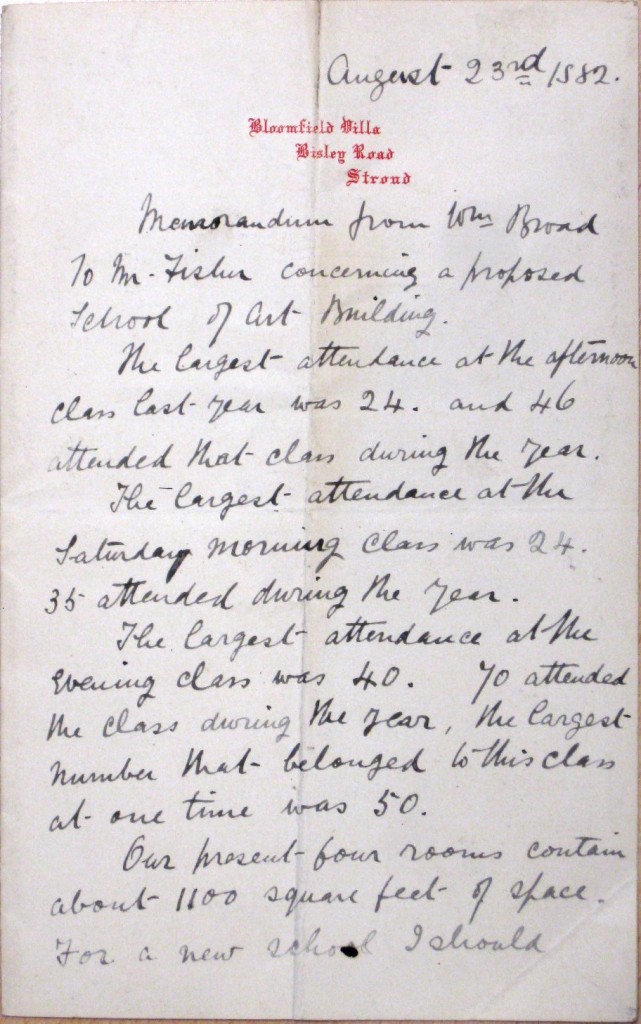 August 23rd 1882.
Bloomfield Villa
Bisley Road
Stroud
Memorandum from Wm Broad
To Mr. Fisher concerning a proposed
School of Art Building.
The largest attendance at the afternoon
class last year was 24. and 46
attended that class during the year.
The largest attendance at the
Saturday morning class was 24.
35 attended during the year.
The largest attendance at the
Evening class was 40. 70 attended
the class during the year, the largest
number that belonged to this class
at one time was 50.
Our present four rooms contain
about 1100 square feet of space.
For a new school I should